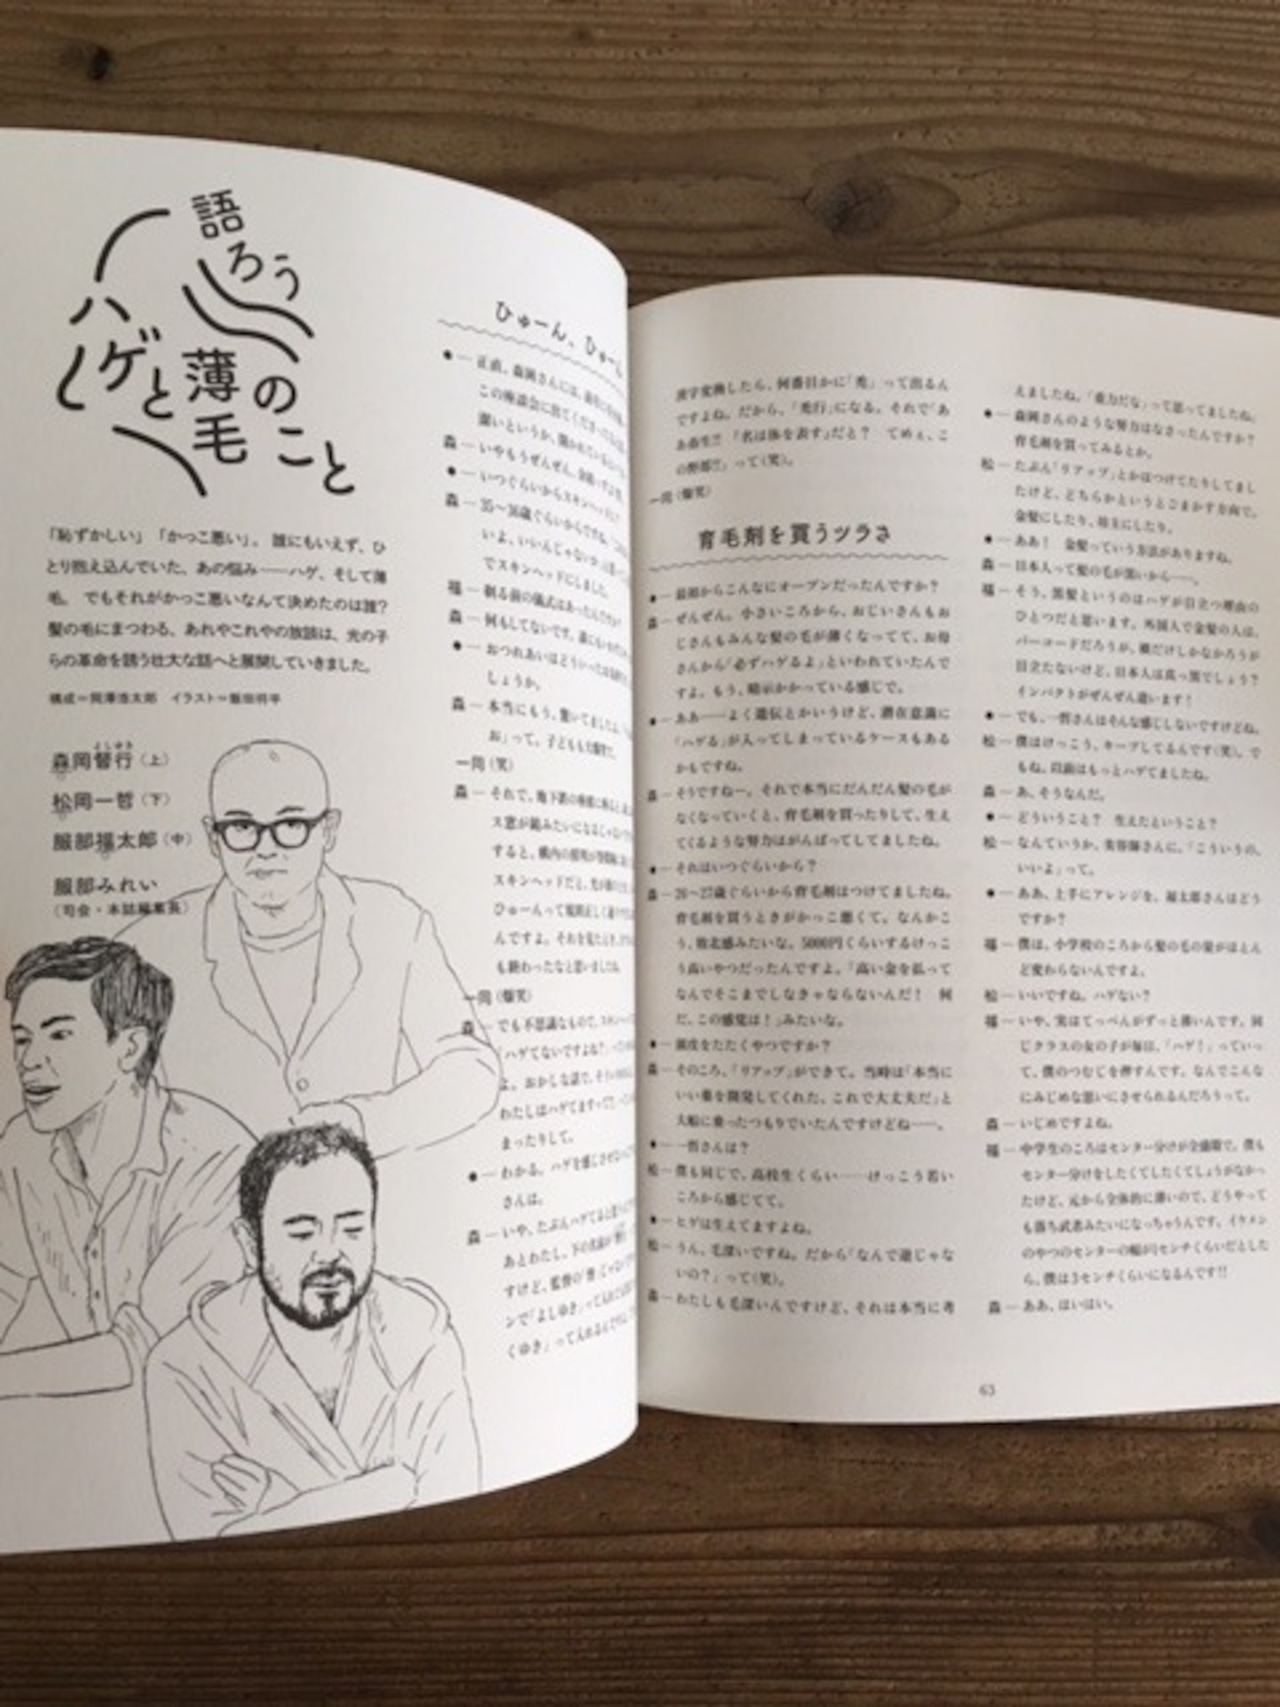 語ろう
ハゲと薄毛のこと
「恥ずかしい」「かっこ悪い」。誰にもいえず、ひ
とり抱え込んでいた、あの悩み——ハゲ、そして薄
毛。でもそれがかっこ悪いなんて決めたのは誰?
髪の毛にまつわる、あれやこれやの放談は、光の子
らの革命を誘う壮大な話へと展開していきました。
構成=岡澤浩太郎 イラスト=飯田将平
よしゆき
森岡督行(上)
松岡一哲(下)
服部福太郎(中)
服部みれい
(司会・本誌編集長)
ひゅーん、ひゅーん
●—正直、森岡さんには、
この座談会に出てくださって
森—いやもうぜんぜん。
●—いつぐらいからスキンヘッドに?
森—35〜36歳ぐらいからですね。
いよ、いいんじゃないか
でスキンヘッドにしました。
福—剃る前の儀式はあったんですか?
森—何もしてないです。
●—おつれあいはどういった
しょうか。
森—本当にもう、驚いてましたよ。
お」って。子どもも大爆笑。
一同(笑)
森—それで、地下鉄の
すると、構内の照明が
スキンヘッドだと、光が
ひゅーんって規則正しく
んですよ。それを見たとき、
も終わったなと思いましたね。
一同(爆笑)
森—でも不思議なもので、
「ハゲてないですよね?」
よ。おかしな話で、
わたしはハゲてますって
まったりして。
●—わかる。ハゲを感じさせない
さんは。
森—いや、たぶんハゲてると
あとわたし、下の名前が
すけど、監督の「督」
ンで「よしゆき」って入れ
くゆき」って入れるんです
漢字変換したら、何番目かに「禿」って出るん
ですよね。だから、「禿行」になる。それで「あ
あ畜生!! 『名は体を表す』だと? てめぇ、こ
の野郎!!」って(笑)。
一同(爆笑)
育毛剤を買うツラさ
●—最初からこんなにオープンだったんですか?
森—ぜんぜん。小さいころから、おじいさんもお
じさんもみんな髪の毛が薄くなってて、お母
さんから「必ずハゲるよ」といわれていたんで
すよ。もう、暗示かかっている感じで。
●—ああ——よく遺伝とかいうけど、潜在意識に
「ハゲる」が入ってしまっているケースもある
かもですね。
森—そうですねー。それで本当にだんだん髪の毛が
なくなっていくと、育毛剤を買ったりして、生え
てくるような努力はがんばってしてましたね。
●—それはいつぐらいから?
森—26〜27歳ぐらいから育毛剤はつけてましたね。
育毛剤を買うときがかっこ悪くて。なんかこ
う、敗北感みたいな。5000円くらいするけっこ
う高いやつだったんですよ。「高い金を払って
なんでそこまでしなきゃならないんだ! 何
だ、この感覚は!」みたいな。
●—頭皮をたたくやつですか?
森—そのころ、「リアップ」ができて。当時は「本当に
いい薬を開発してくれた、これで大丈夫だ」と
大船に乗ったつもりでいたんですけどね——。
●—一哲さんは?
松—僕も同じで、高校生くらい——けっこう若い
ころから感じてて。
●—ヒゲは生えてますよね。
松—うん、毛深いですね。だから「なんで逆じゃな
いの?」って(笑)。
森—わたしも毛深いんですけど、それは本当に考
えましたね。「重力だな」って思ってましたね。
●—森岡さんのような努力はなさったんですか?
育毛剤を買ってみるとか。
松—たぶん「リアップ」とかはつけてたりしてまし
たけど、どちらかというとごまかす方向で。
金髪にしたり、坊主にしたり。
●—ああ! 金髪っていう方法がありますね。
森—日本人って髪の毛が黒いから——。
福—そう、黒髪というのはハゲが目立つ理由の
ひとつだと思います。外国人で金髪の人は、
バーコードだろうが、横だけしかなかろうが
目立たないけど、日本人は真っ黒でしょう?
インパクトがぜんぜん違います!
●—でも、一哲さんはそんな感じしないですけどね。
松—僕はけっこう、キープしてるんです(笑)。で
もね、以前はもっとハゲてましたね。
森—あ、そうなんだ。
●—どういうこと? 生えたということ?
松—なんていうか、美容師さんに、「こういうの、
いいよ」って。
●—ああ、上手にアレンジを。福太郎さんはどう
ですか?
福—僕は、小学校のころから髪の毛の量がほとん
ど変わらないんですよ。
松—いいですね。ハゲない?
福—いや、実はてっぺんがずっと薄いんです。同
じクラスの女の子が毎日、「ハゲ!」っていっ
て、僕のつむじを押すんです。なんでこんな
にみじめな思いにさせられるんだろうって。
森—いじめですよね。
福—中学生のころはセンター分けが全盛期で。僕も
センター分けをしたくてしたくてしょうがなかっ
たけど、元から全体的に薄いので、どうやって
も落ち武者みたいになっちゃうんです。イケメン
のやつのセンターの幅が1センチくらいだとした
ら、僕は3センチくらいになるんです!!
森—ああ、はいはい。
63